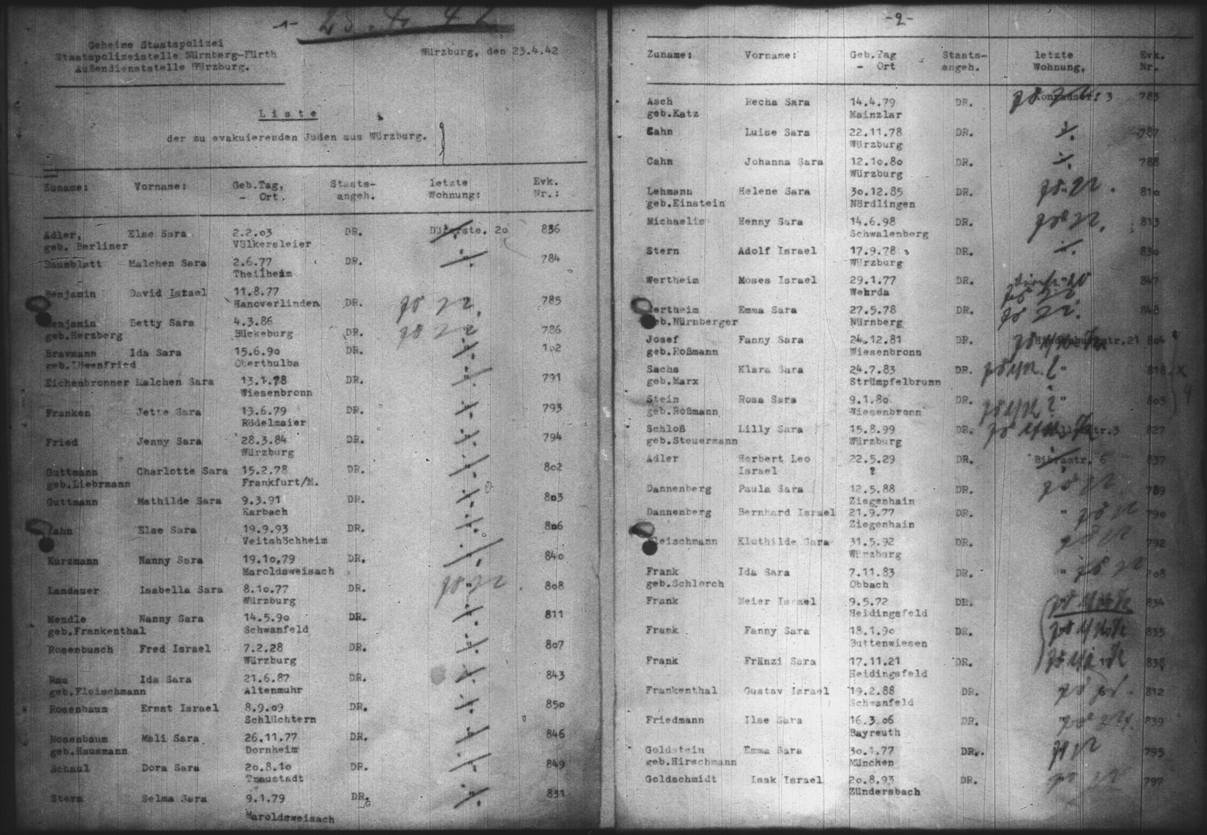 -1-
23.4.42
Geheime Staatspolizei
Staatspolizeistelle Nürnberg-Fürth
Außendienststelle Würzburg.
Würzburg, den 23.4.42
Liste
der zu evakuierenden Juden aus Würzburg.
Zuname: Vorname: Geb.Tag, Staats- letzte Evk.
- Ort. angeh. Wohnung: Nr.:
Adler, Else Sara 2.2.03 DR. 20 836
geb. Berliner Völkersleier
Baumblatt Malchen Sara 2.6.77 DR. 784
Theilheim
Benjamin David Israel 11.8.77 DR. 785
Hanoverlinden
Benjamin Betty Sara 4.3.86 DR. 786
geb.Herzberg Bückeburg
Bravmann Ida Sara 15.6.90 DR.
geb.Löwenfried Oberthulba
Eichenbronner Malchen Sara 13.1.78 DR. 791
Wiesenbronn
Franken Jette Sara 13.6.79 DR. 793
Rödelmaier
Fried Jenny Sara 28.3.84 DR. 794
Würzburg
Guttmann Charlotte Sara 15.2.78 DR. 802
geb.Liebrmann Frankfurt/M.
Guttmann Mathilde Sara 9.3.91 DR. 803
Karbach
Else Sara 19.9.93 DR. 806
Veitshöchheim
Kurzmann Nanny Sara 19.10.79 DR. 840
Maroldsweisach
Landauer Isabella Sara 8.10.77 DR. 808
Würzburg
Mendle Nanny Sara 14.5.90 DR. 811
geb.Frankenthal Schwanfeld
Rosenbusch Fred Israel 7.2.28 DR. 807
Würzburg
Ida Sara 21.6.87 DR. 843
geb.Fleischmann Altenmuhr
Rosenbaum Ernst Israel 8.9.09 DR. 850
Schlüchtern
Rosenbaum Meli Sara 26.11.77 DR. 846
geb.Hausmann Dornheim
Schaul Dora Sara 20.8.10 DR. 849
Traustadt
Stern Selma Sara 9.1.79 DR. 831
Maroldsweisach
-2-
Zuname: Vorname: Geb.Tag Staats- letzte Evk.
- Ort angeh. Wohnung. Nr.
Asch Recha Sara 14.4.79 DR. 3 783
geb.Katz Mainzlar
Cahn Luise Sara 22.11.78 DR. 787
Würzburg
Cahn Johanna Sara 12.10.80 DR. 788
Würzburg
Lehmann Helene Sara 30.12.85 DR. 810
geb.Einstein Nördlingen
Michaelis Henny Sara 14.6.98 DR. 813
Schwalenberg
Stern Adolf Israel 17.9.78 DR. 830
Würzburg
Wertheim Moses Israel 29.1.77 DR. 847
Wehrda
Wertheim Emma Sara 27.5.78 DR. 848
geb.Nürnberger Nürnberg
Josef Fanny Sara 24.12.81 DR. 21 804
geb.Roßmann Wiesenbronn
Sachs Klara Sara 24.7.83 DR. 818
geb.Marx Strümpfelbrunn
Stein Rosa Sara 9.1.80 DR.
geb.Roßmann Wiesenbronn
Schloß Lilly Sara 15.8.99 DR. 827
geb.Steuermann Würzburg
Adler Herbert Leo 22.5.29 DR. Bibrastr. 6 837
Israel ?
Dannenberg Paula Sara 12.5.88 DR. 789
Ziegenhain
Dannenberg Bernhard Israel 21.9.77 DR. " 790
Ziegenhain
Fleischmann Klothilde Sara 31.5.92 DR. 792
Würzburg
Frank Ida Sara 7.11.83 DR. "
geb.Schlorch Obbach
Frank Meier Israel 9.5.72 DR. 834
Heidingsfeld
Frank Fanny Sara 18.1.90 DR. 835
Buttenwiesen
Frank Fränzi Sara 17.11.21 DR.
Heidingsfeld
Frankenthal Gustav Israel 19.2.88 DR. 812
Schwanfeld
Friedmann Ilse Sara 16.3.06 DR. 839
Bayreuth
Goldstein Emma Sara 30.1.77 DR. 795
geb.Hirschmann München
Goldschmidt Isak Israel 20.8.93 DR. 797
Zündersbach